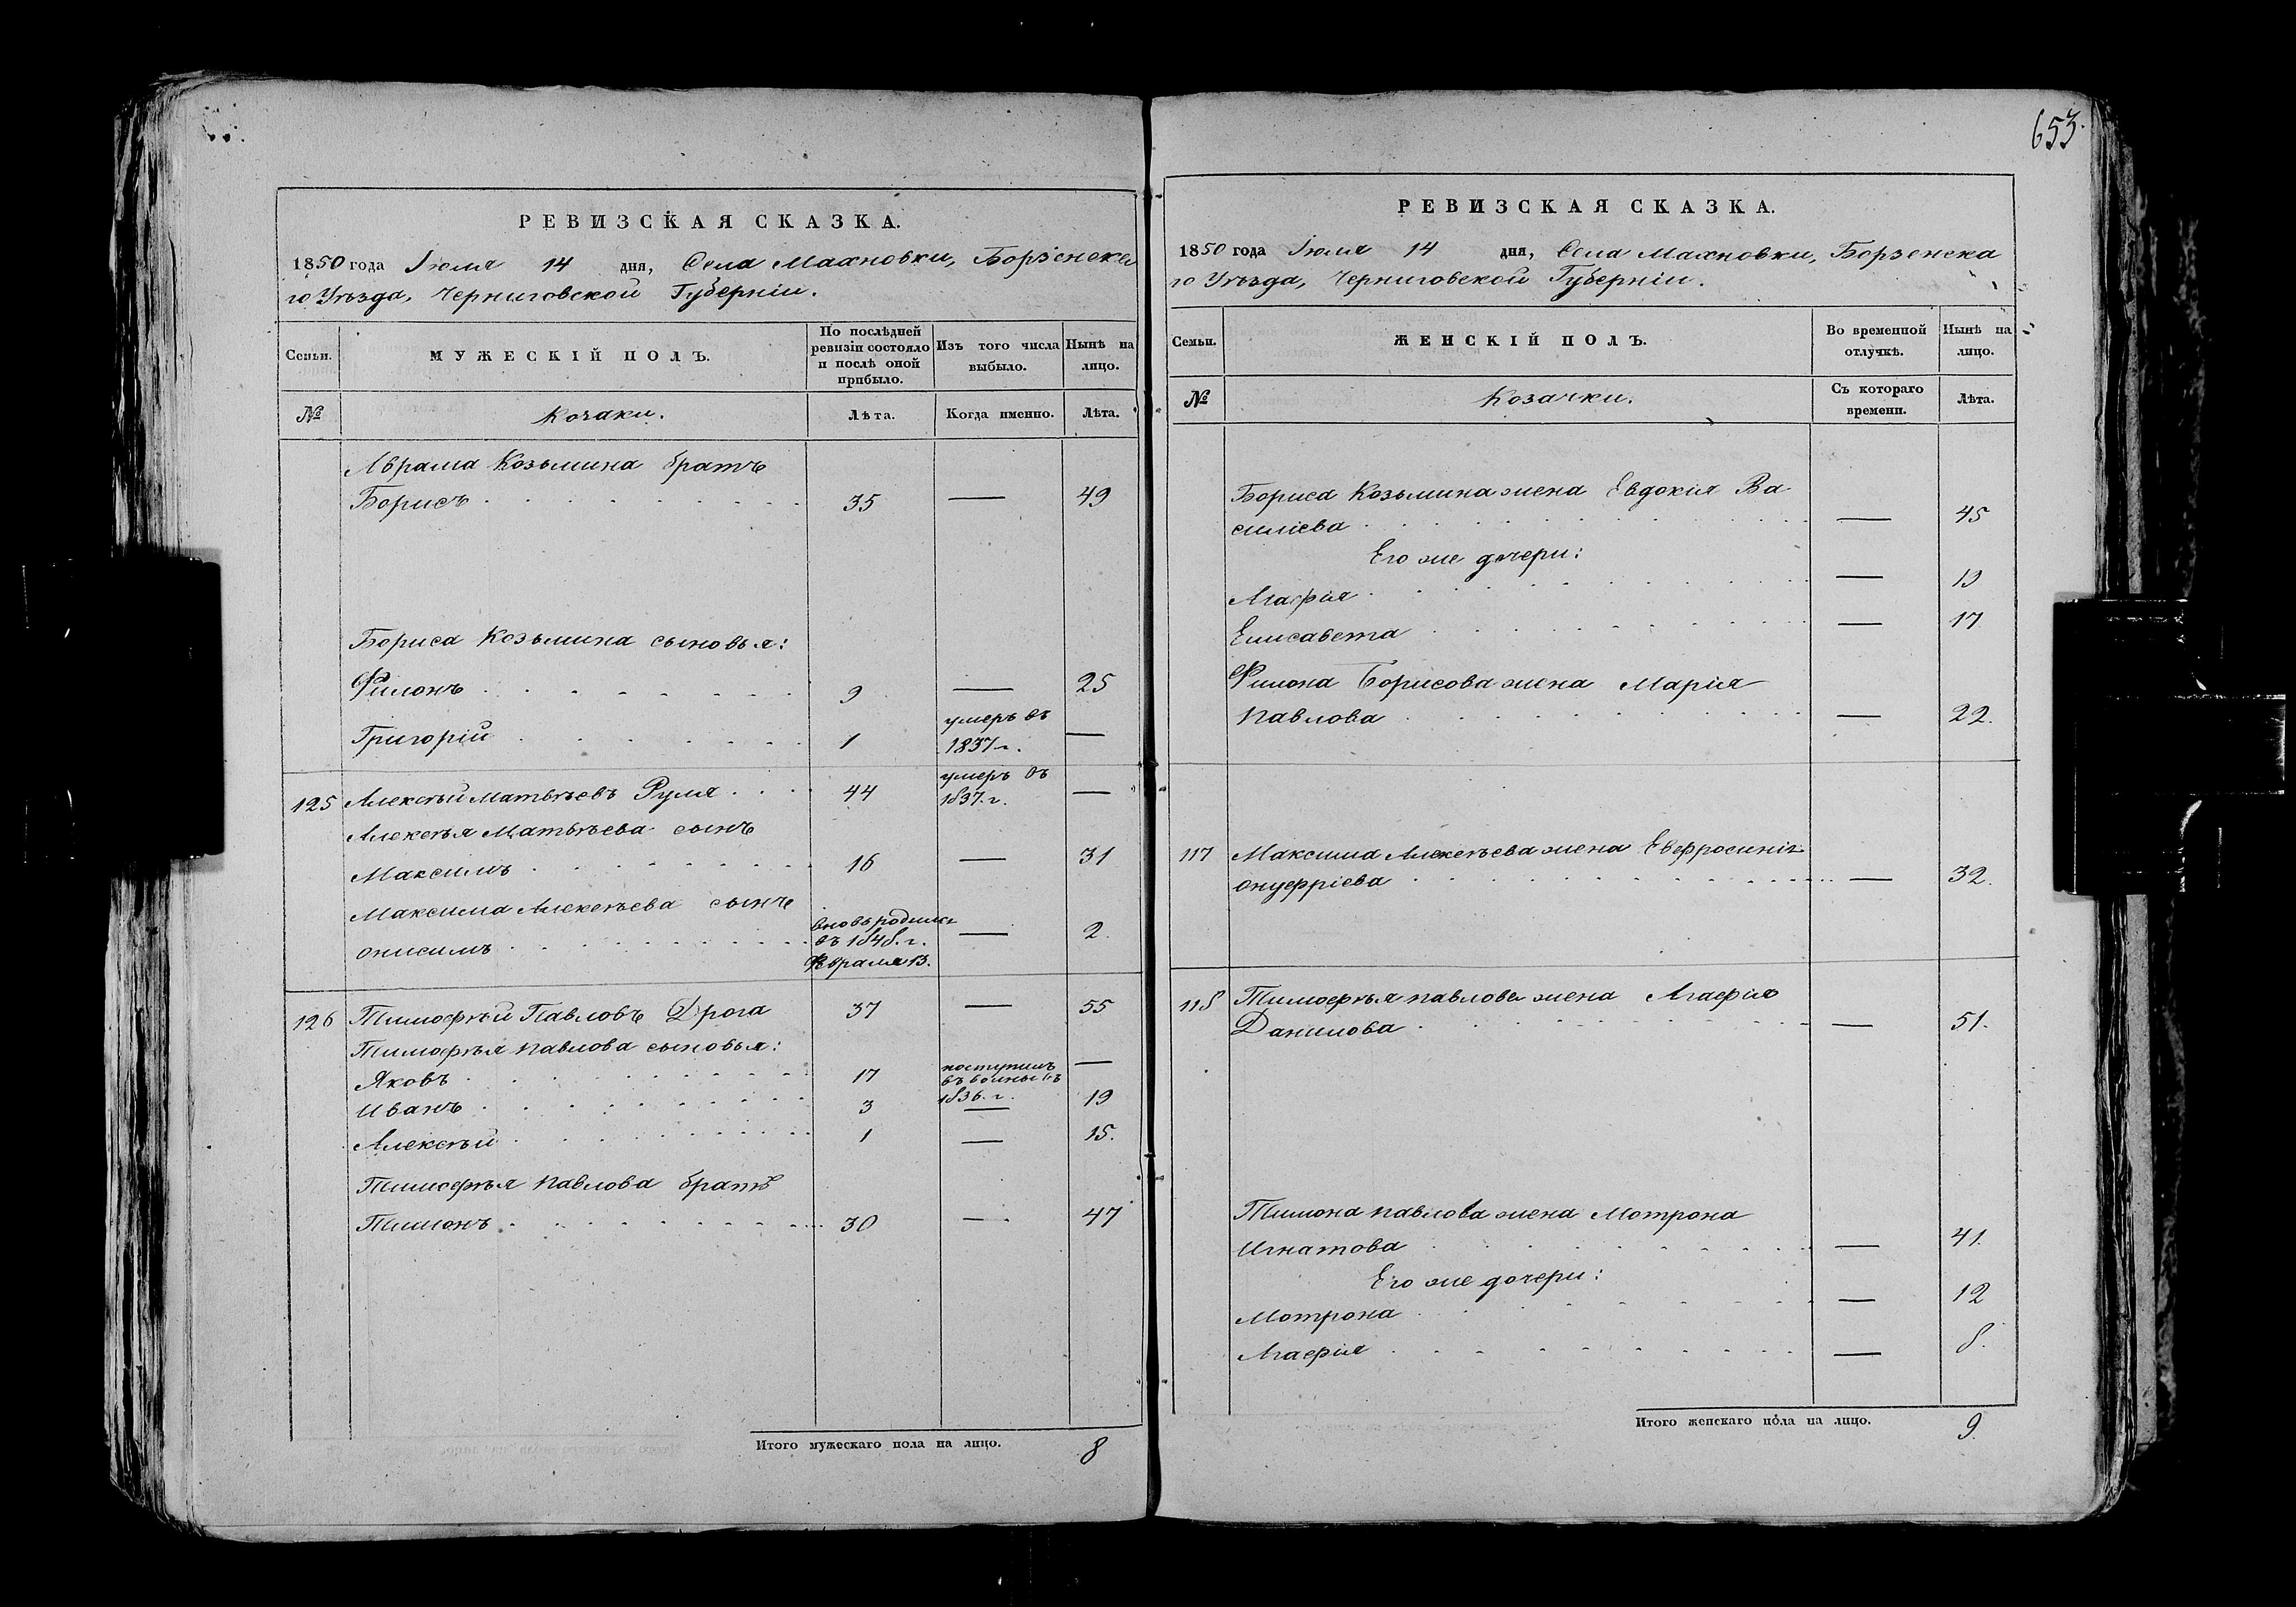 РЕВИЗСКАЯ СКАЗКА.
1850 года Іюля 14 дня, Села Махновки, Борзенска
го Уѣзда, Черниговской Губерніи.
Семьи.
МУЖЕСКІЙ ПОЛЪ.
По послѣдней
ревизіи состояло
и послѣ оной
прибыло.
Изъ того числа
выбыло.
Нынѣ на
лицо.
№
Козаки.
Лѣта.
Когда именно.
Лѣта.
Аврама Козьмина братъ
Борисъ 35 — 49
Бориса Козьмина сыновья:
Филонъ 9 — 25
Григорій 1 умеръ въ 1837 г. —
125 Алексѣй Матвѣевъ Руля 44 умеръ въ 1837. г. —
Алексѣя Матвѣева сынъ
Максимъ 16 — 31
Максима Алексѣева сынъ
Онисимъ вновь родился въ 1848. г. Февраля 13. — 2.
126 Тимофѣй Павловъ Дрога 37 — 55
Тимофѣя Павлова сыновья:
Яковъ 17 поступилъ въ воины въ 1836. г. —
Иванъ 3 — 19
Алексѣй 1 — 15.
Тимофѣя Павлова братъ
Тимонъ 30 — 47
Итого мужескаго пола на лицо. 8
653.
РЕВИЗСКАЯ СКАЗКА.
1850 года Іюля 14 дня, Села Махновки, Борзенска
го Уѣзда, Черниговской Губерніи.
Семьи.
ЖЕНСКІЙ ПОЛЪ.
Во временной
отлучкѣ.
Нынѣ на
лицо.
№
Козачки.
Съ котораго
времени.
Лѣта.
Бориса Козьмина жена Евдокія Ва
силіева — 45
Его же дочери:
Агафія — 19
Елисавета — 17
Филона Борисова жена Марія
Павлова — 22.
117 Максима Алексѣева жена Евфросинія
Онуфріева — 32.
118 Тимофѣя Павлова жена Агафія
Данилова — 51.
Тимона Павлова жена Мотрона
Игнатова — 41.
Его же дочери:
Мотрона — 12
Агафія — 8.
Итого женскаго пола на лицо. 9.